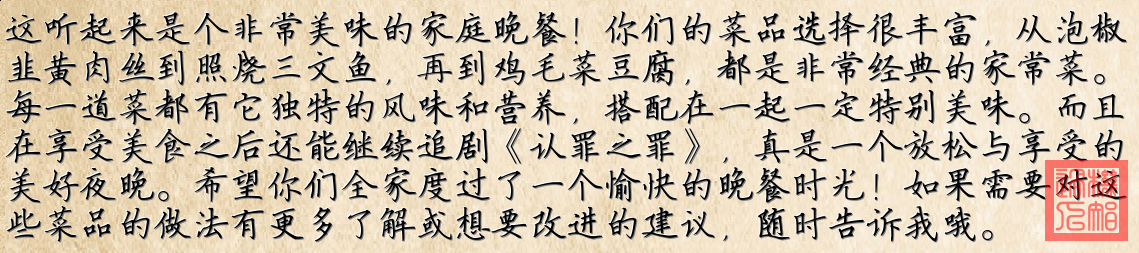 这听起来是个非常美味的家庭晚餐！你们的菜品选择很丰富，从泡椒
韭黄肉丝到照烧三文鱼，再到鸡毛菜豆腐，都是非常经典的家常菜。
每一道菜都有它独特的风味和营养，搭配在一起一定特别美味。而且
在享受美食之后还能继续追剧《认罪之罪》，真是一个放松与享受的
美好夜晚。希望你们全家度过了一个愉快的晚餐时光！如果需要对这
些菜品的做法有更多了解或想要改进的建议，随时告诉我哦。